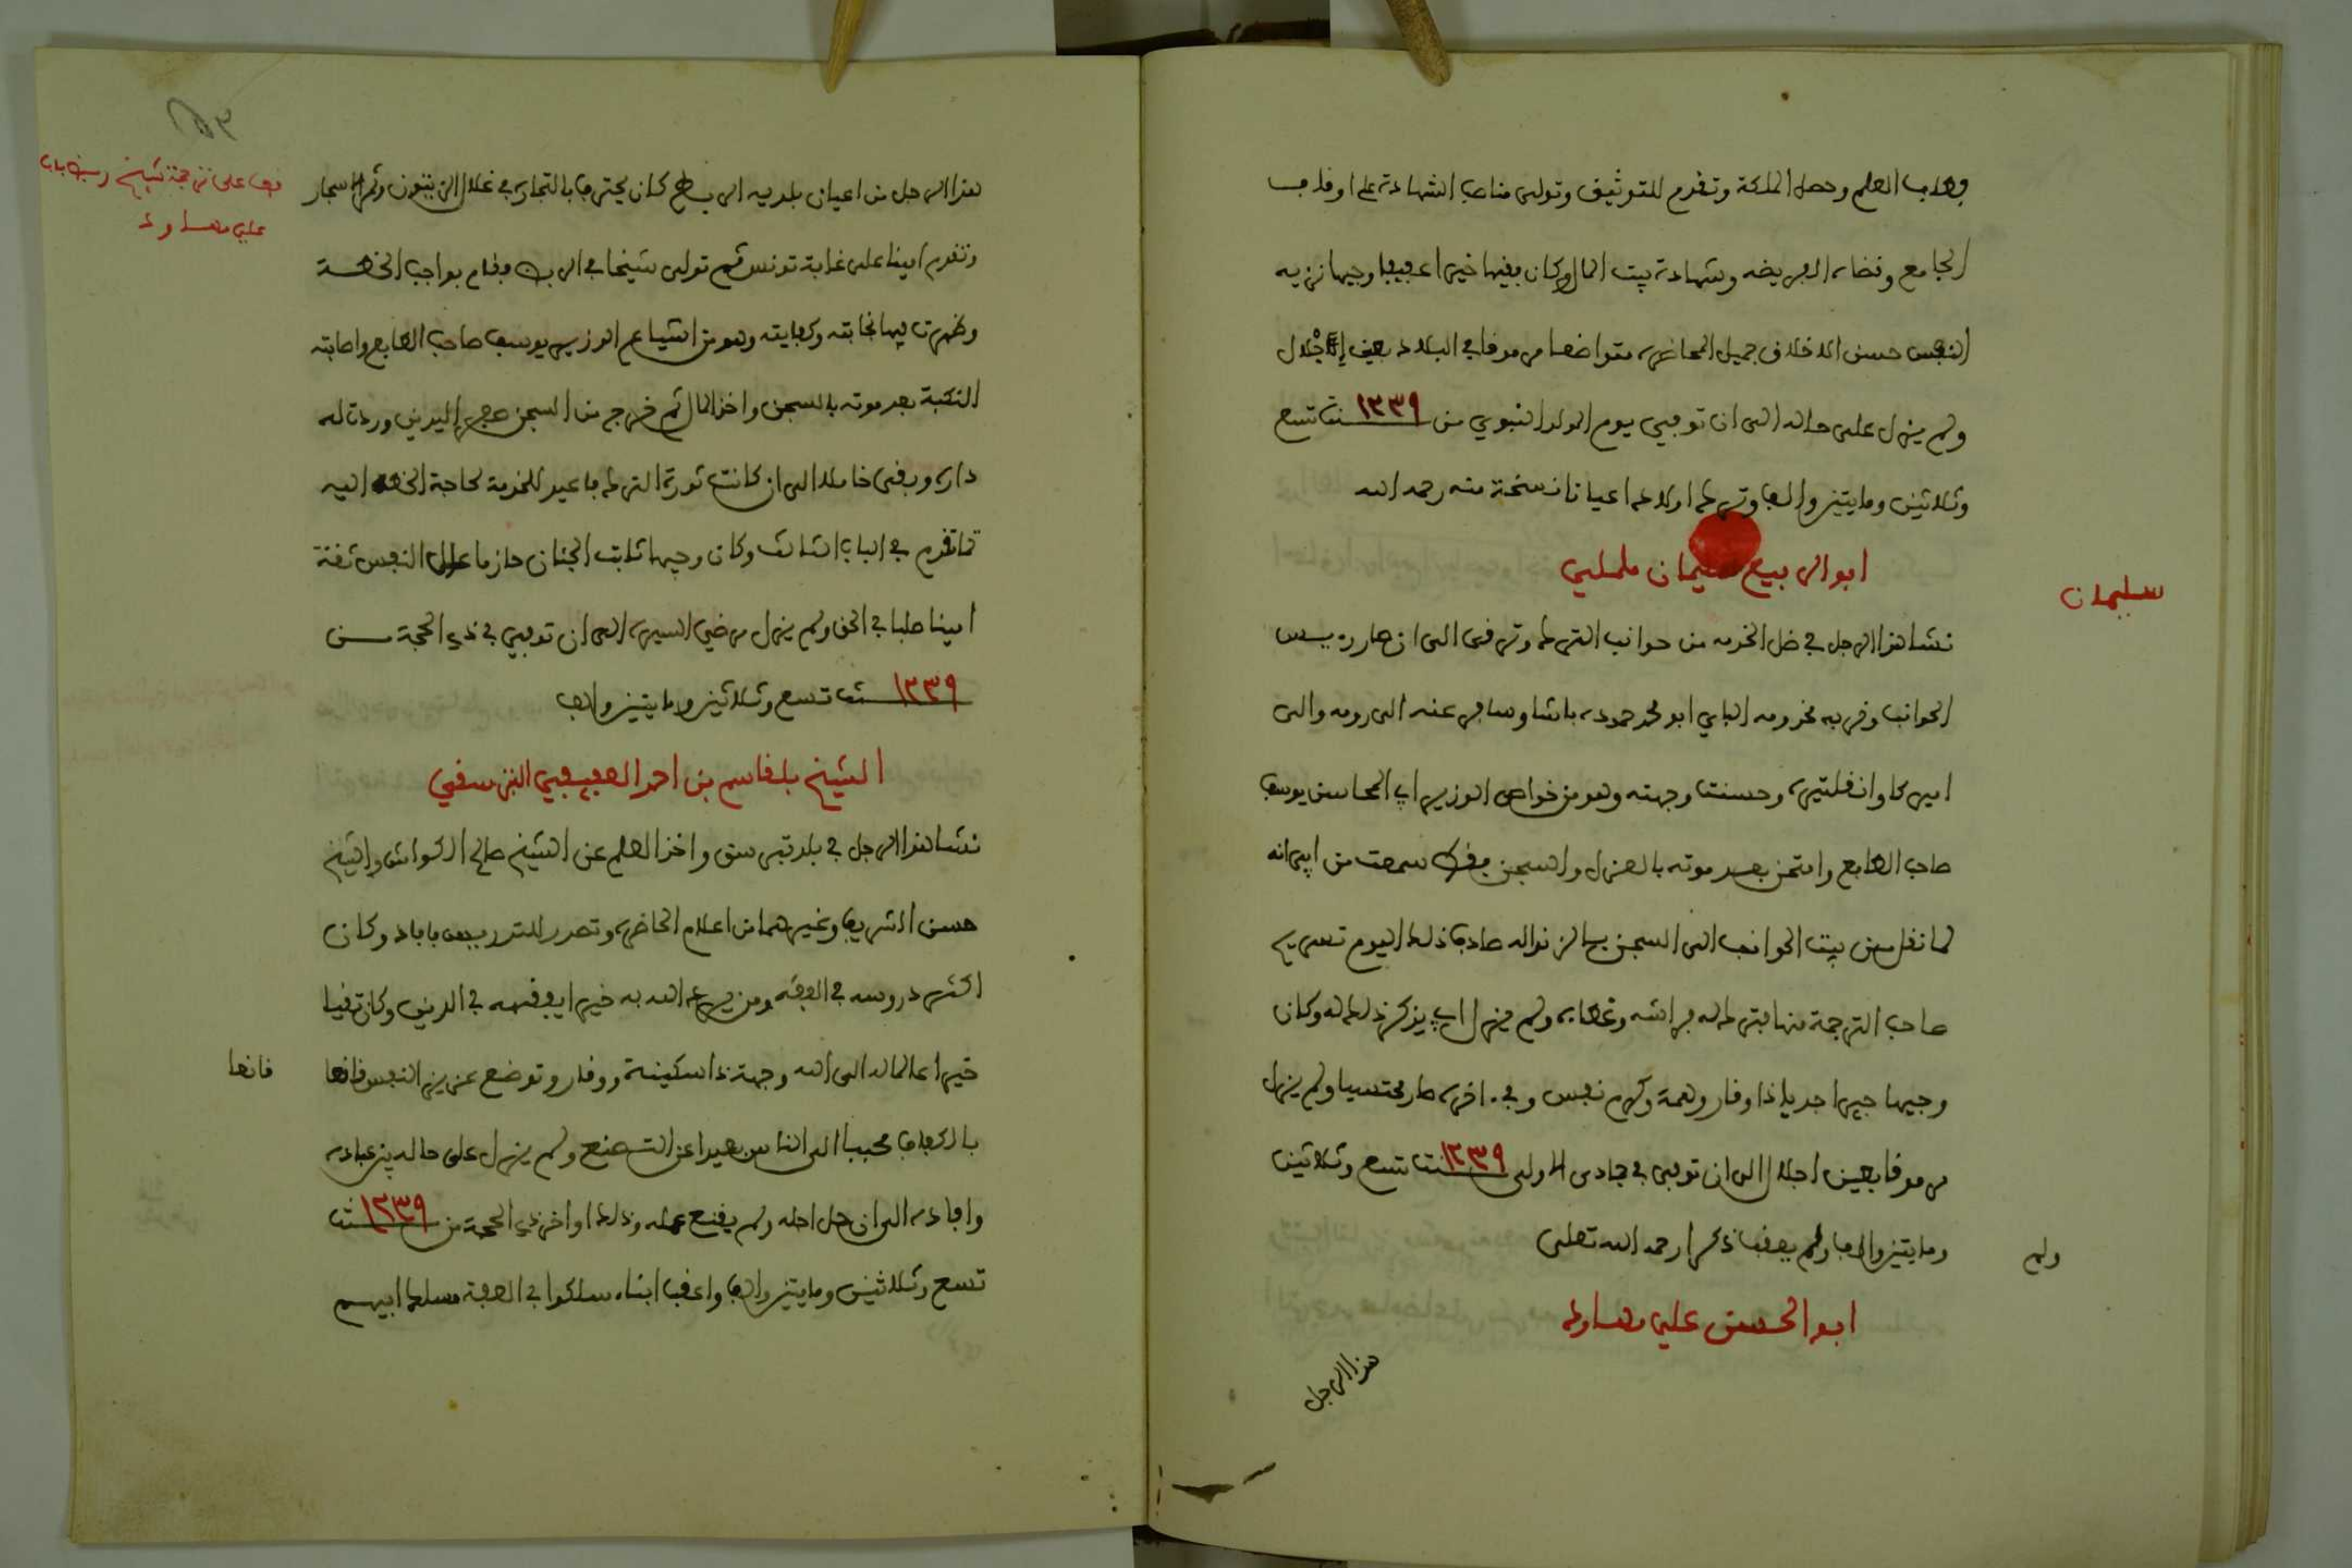 وطلب العلم وحصل الملكة وتقدم للتوثيق وتولى مناصب الشهادة على اوقاف
الجامع وقضاء الفريضه وشهادة بيت المال وكان فقيها خيرا عفيفا وجيها نزيه
النفس حسن الاخلاق جميل المحاضرة متواضعا مرموقا في البلاد بعين الاجلال
ولم يزل على حاله الى ان توفي يوم المولد النبوي من ١٢٣٩ سنة تسع
وثلاثين ومايتين والف وترك اولاده اعيانا نسخة منه رحمه الله
ابو الربيع سليمان ململي
سليمان
نشا هذا الرجل في ظل الخدمه من حوانب الترك وترقى الى ان صار رءيس
الحوانب وقربه مخدومه الباي ابو محمد حموده باشا وسافر عنه الى رومه والى
اميركا وانقلتيرة وحسنت وجهته وهو من خواص الوزير ابي المحاسن يوسف
صاحب الطابع وامتحن بعد موته بالعزل والسجن فقد سمعت من ابي انه
لما نقل من بيت الحوانب الى السجن بسائر نواله صادف ذلك اليوم تسريح
صاحب الترجمة منها فترك له فراشه وغطاءه ولم يزل ابي يذكر ذلك له وكان
وجيها خيرا جديا ذا وقار وهمة وكرم نفس وفي اخره صار محتسبا ولم يزل
مرموقا بعين اجلال الى ان توفى في جمادى الاولى ١٢٣٩ سنة تسع وثلاثين
ومايتين والف ولم يعقب ذكرا رحمه الله تعلى
ولم
ابو الحسن علي مهاود
هذا الرجل
قف على ترجمة شيخ ربض باب
علي مهاود
هذا الرجل من اعيان بلديه الربط كان يحترف بالتجارة في غلال الزيتون وثمر الاشجار
وتقدم امينا على غابة تونس ثم تولى شيخا في الربض وقام بواجب الخطة
وظهرت فيها نجابته وكفايته وهو من اشياع الوزير يوسف صاحب الطابع واصابته
النكبة بعد موته بالسجن واخذ المال ثم خرج من السجن صفر اليدين وردت له
داره وبقى خاملا الى ان كانت ثورة الترك فاعيد للخدمة لحاجة الخطة اليه
كما تقدم في الباب الثالث وكان وجيها ثابت الجنان حازما عالي النفس ثقة
امينا صلبا في الحق ولم يزل مرضي السيرة الى ان توفي في ذي الحجة من
١٢٣٩ سنة تسع وثلاثين ومايتين والف
الشيخ بلقاسم بن احمد العفيفي التبرسقي
نشا هذا الرجل في بلد تبرسق واخذ العلم عن الشيخ صالح الكواش والشيخ
حسن الشريف وغيرهما من اعلام الحاضرة وتصدر للتدريس فافاد وكان
اكثر دروسه في الفقه ومن يرد الله به خيرا يفقهه في الدين وكان تقيا
خيرا عالما الى الله وجهته ذا سكينة ووقار وتوضع عزيز النفس قانعا
قانعا
بالكفاف محببا الى الناس بعيدا عن التصنع ولم يزل على حاله بين عباده
وافاده الى ان حل اجله ولم يقنع عمله وذلك اواخر ذي الحجة من ١٢٣٩ سنة
تسع وثلاثين ومايتين والف واعقب ابناء سلكوا في العفة مسلك ابيهم